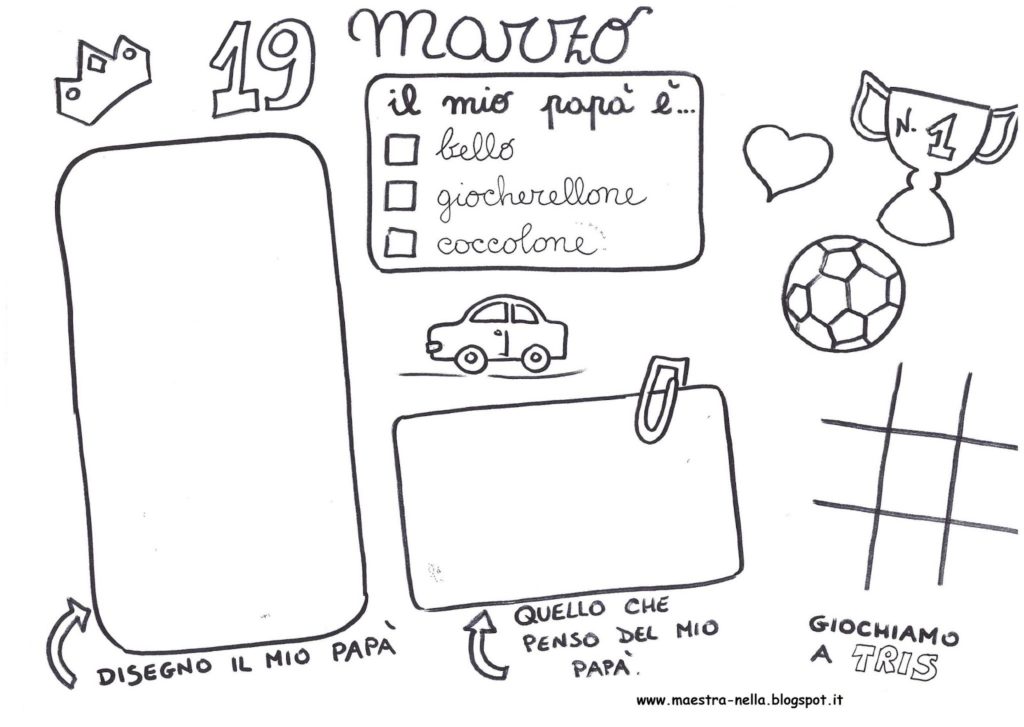 19 marzo
il mio papà è...
bello
giocherellone
coccolone
N. 1
DISEGNO IL MIO PAPÀ
QUELLO CHE
PENSO DEL MIO
PAPÀ.
GIOCHIAMO
A TRIS
www.maestra-nella.blogspot.it